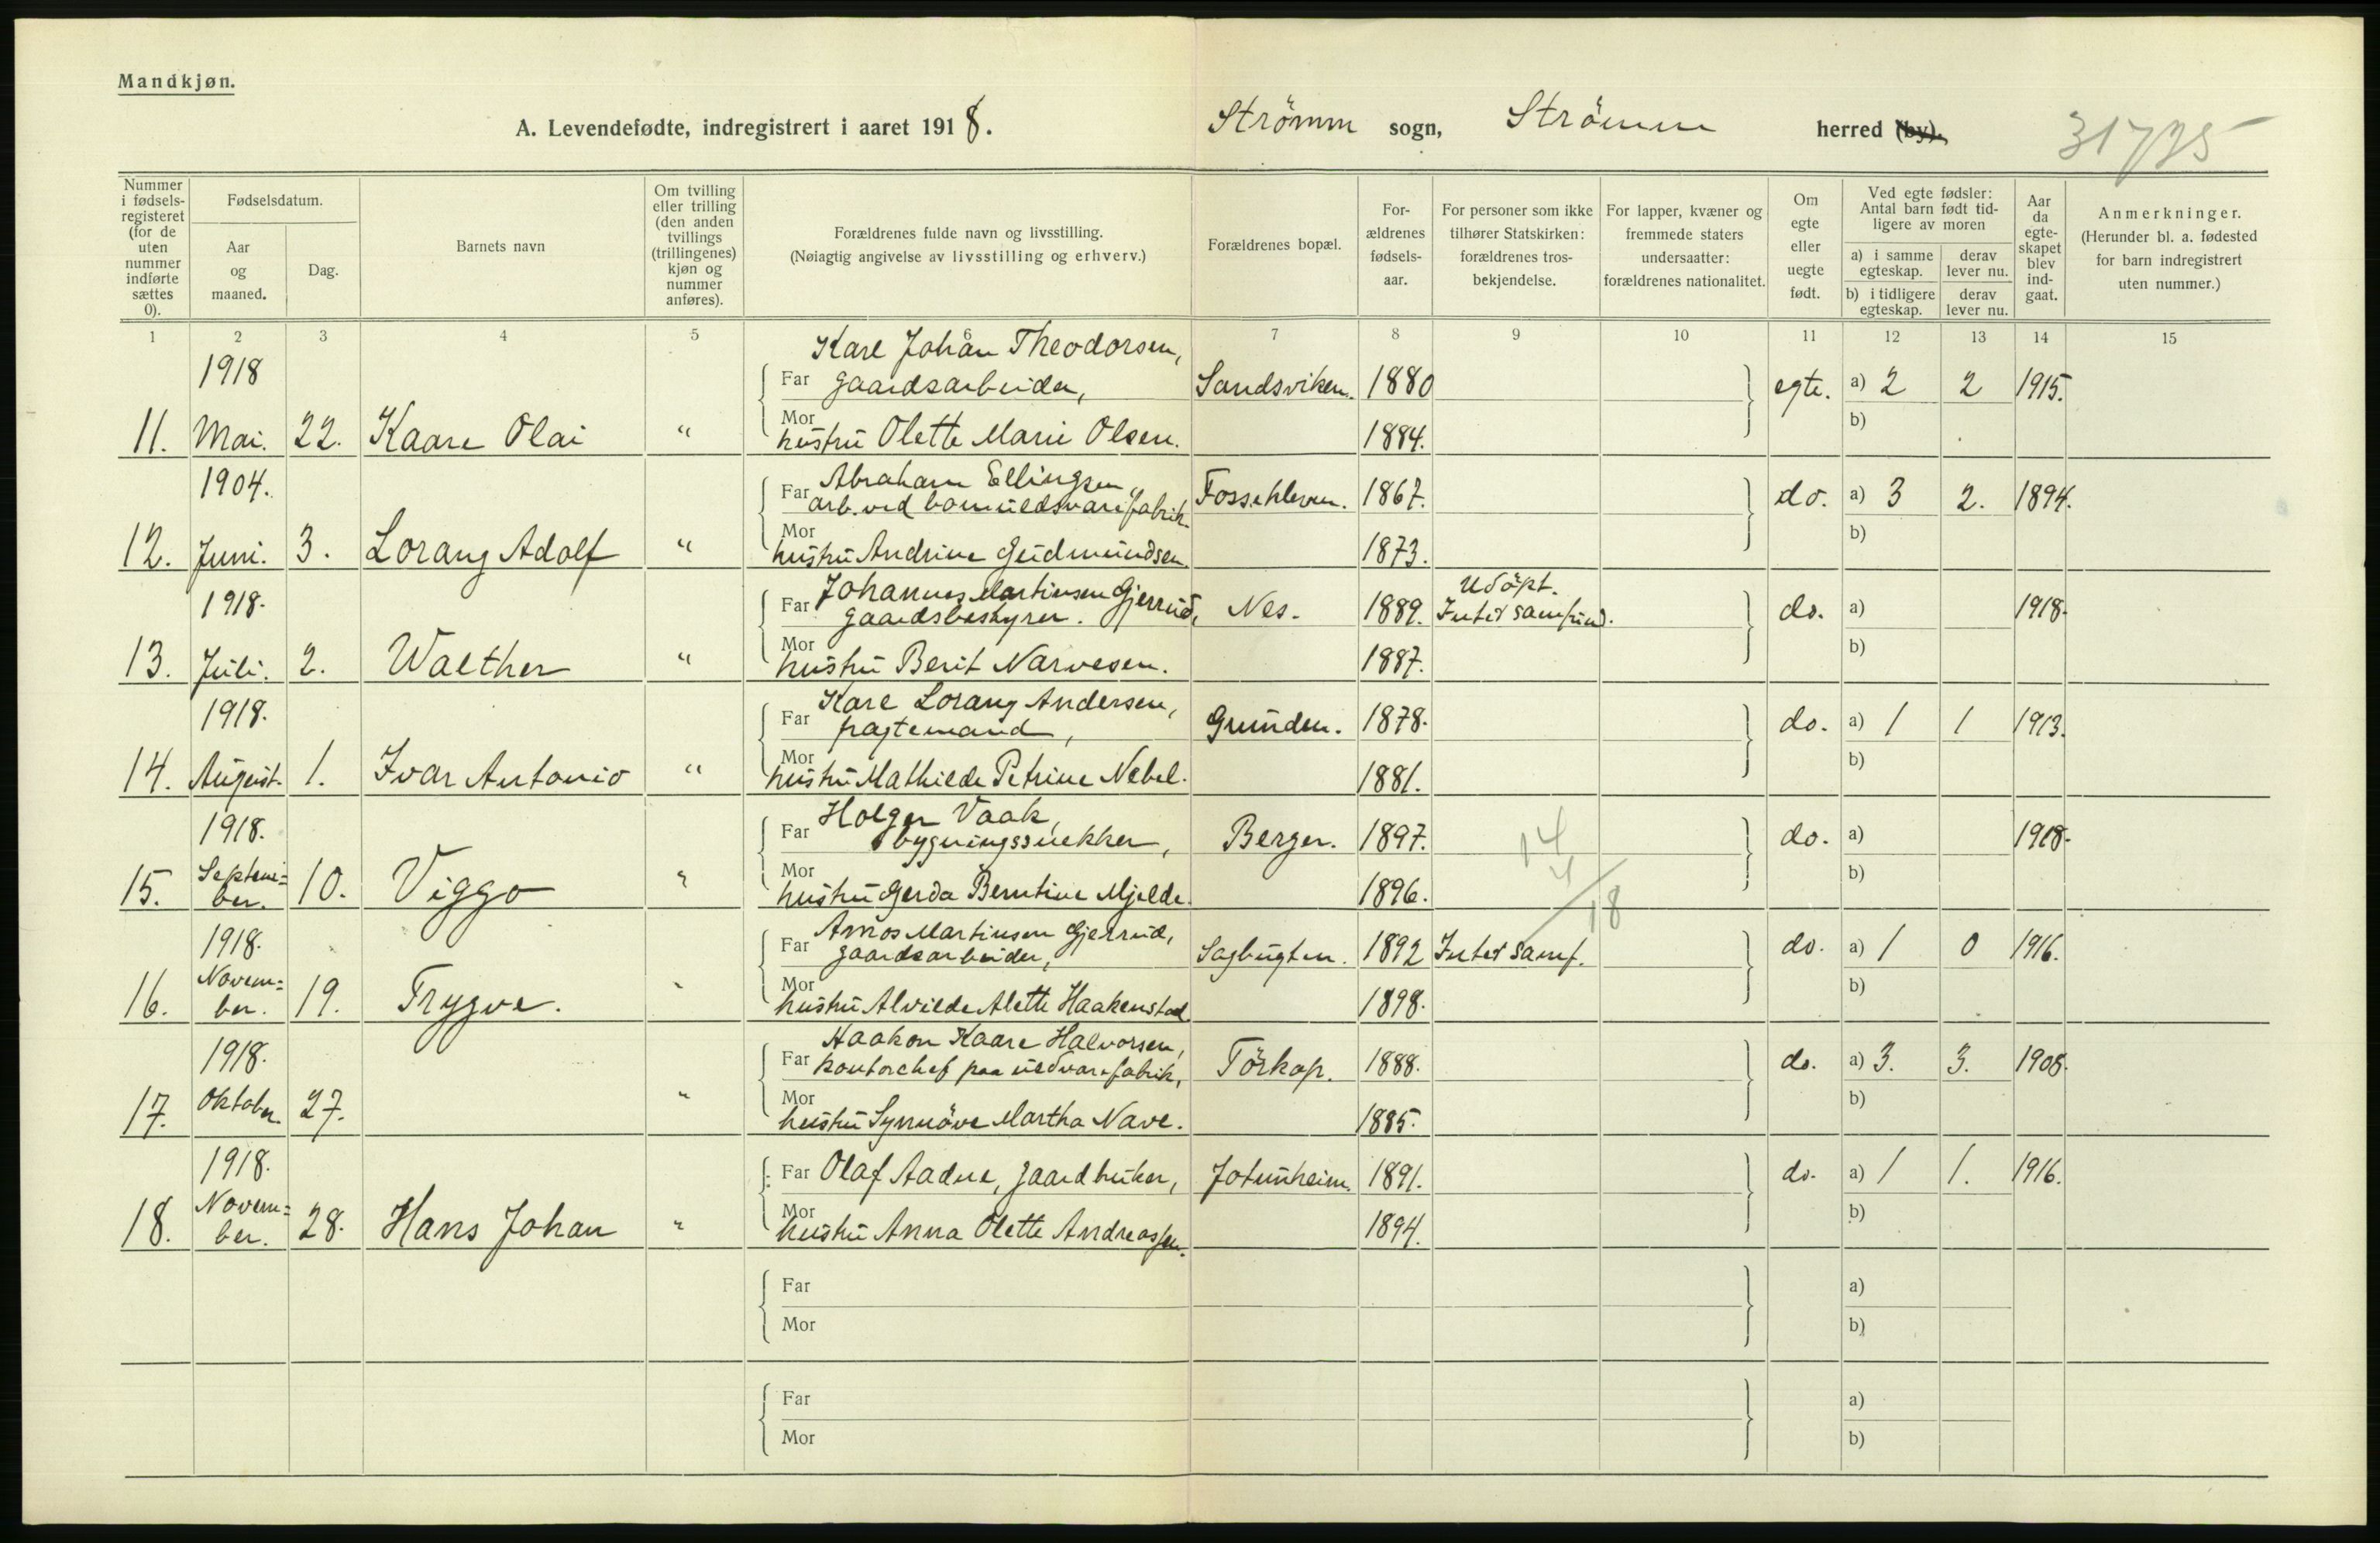 Mandkjøn.
A. Levendefødte, indregistrert i aaret 1918. Strömm sogn, Strömm herred (by).
31735
Nummer i fødsels-registeret (for de uten nummer indførte sættes 0).
Fødselsdatum.
Aar og maaned.
Dag.
Barnets navn
Om tvilling eller trilling (den anden tvillings (trillingenes) kjøn og nummer anføres).
Forældrenes fulde navn og livsstilling.
(Nøiagtig angivelse av livsstilling og erhverv.)
Forældrenes bopæl.
For-ældrenes fødsels-aar.
For personer som ikke tilhører Statskirken: forældrenes tros-bekjendelse.
For lapper, kvæner og fremmede staters undersaatter: forældrenes nationalitet.
Om egte eller uegte født.
Ved egte fødsler: Antal barn født tid-ligere av moren
a) i samme egteskap. derav lever nu.
b) i tidligere egteskap. derav lever nu.
Aar da egte-skapet blev ind-gaat.
Anmerkninger.
(Herunder bl. a. fødested for barn indregistrert uten nummer.)
1 2 3 4 5 6 7 8 9 10 11 12 13 14 15
Karl Johan Theodorsen,
1918 Far gaardsarbeider, Sandsviken. 1880 egte. a) 2 2 1915.
Mor b)
11. Mai. 22. Kaare Olai " hustru Olette Marie Olsen. 1884.
Abraham Ellingsen,
1904. Far arb. ved bomuldsvarefabrik. Fossekleven. 1867. do. a) 3 2. 1894.
Mor b)
12. Juni. 3. Lorang Adolf " hustru Andrine Gudmundsen. 1873.
Johannes Martinsen Gjerrud, Udöpt.
1918. Far gaardsbestyrer. Nes. 1889. Intet samfund. do. a) 1918.
Mor b)
13. Juli. 2. Walther " hustru Berit Narvesen. 1887.
Karl Lorang Andersen,
1918. Far fragtemand, Grunden. 1878. do. a) 1 1 1913.
Mor b)
14. August. 1. Ivar Antonio " hustru Mathilde Petrine Nebel. 1881.
Holger Vaak,
1918. Far bygningssnekker, Berger. 1897. do. a) 1918.
14
4
18
Mor b)
15. Septem=
ber. 10. Viggo " hustru Gerda Berntine Mjelde. 1896.
Amos Martinsen Gjerrud,
1918. Far gaardsarbeider, Sagbugten. 1892 Intet samf. do. a) 1 0 1916.
Mor b)
16. Novem=
ber. 19. Trygve. " hustru Alvilde Alette Haakenstad 1898.
Haakon Kaare Halvorsen,
1918. Far kontorchef paa uldvarefabrik, Törkop. 1888. do. a) 3. 3. 1908.
Mor b)
17. Oktober. 27. " hustru Synnöve Martha Nave. 1885.
1918. Far Olaf Aadne, gaardbruker, Jotunheim. 1891. do. a) 1 1. 1916.
Mor b)
18. Novem=
ber. 28. Hans Johan " hustru Anna Olette Andreassen. 1894.
Far a)
Mor b)
Far a)
Mor b)